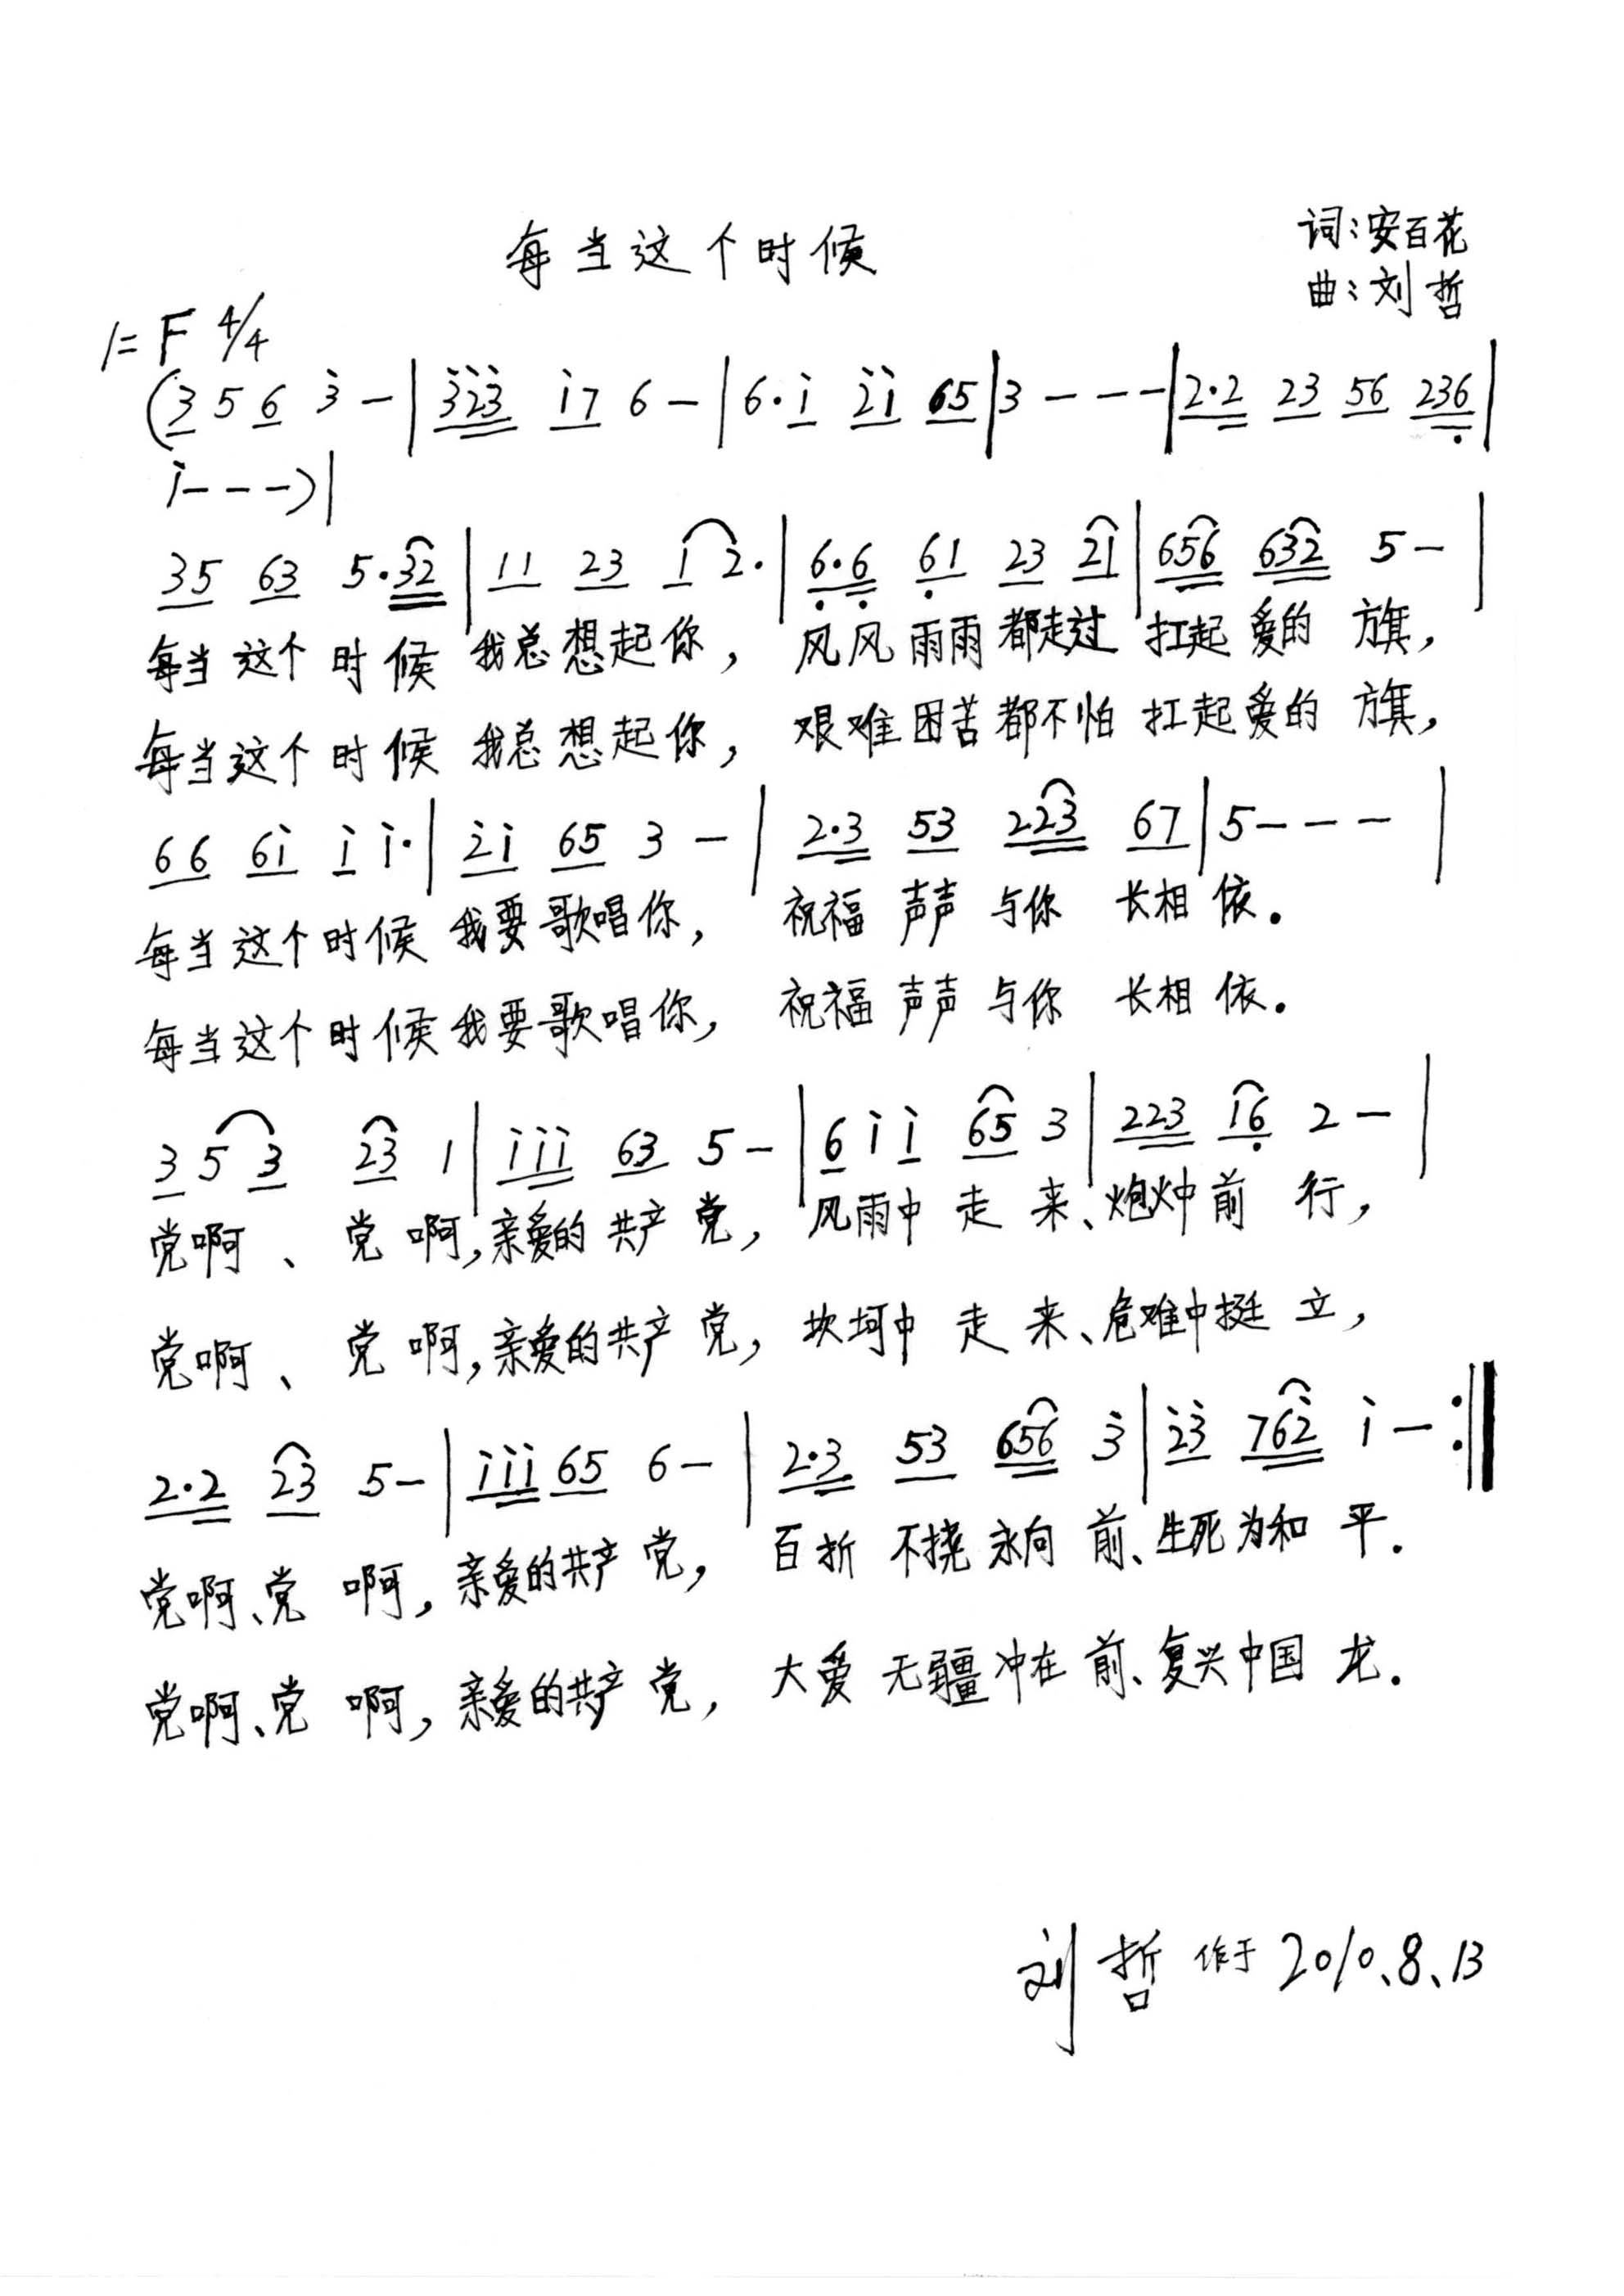 每当这个时候
词:安百花
曲:刘哲
1=F 4/4
(3 5 6 3̇ — | 3̇2̇3̇ 1̇7 6 — | 6·1̇ 2̇1̇ 65 | 3 — — — | 2·2 23 56 236̣ |
1̇ — — —) |
35 63 5·32 | 11 23 1 2· | 6̣·6̣ 6̣1 23 21 | 656 632 5 — |
每当这个时候我总想起你, 风风雨雨都走过 扛起爱的旗,
每当这个时候我总想起你, 艰难困苦都不怕 扛起爱的旗,
66 61̇ 1̇ 1̇· | 2̇1̇ 65 3 — | 2·3 53 223 67 | 5 — — — |
每当这个时候我要歌唱你, 祝福声声与你长相依。
每当这个时候我要歌唱你, 祝福声声与你长相依。
3 5 3 23 1 | 1̇1̇1̇ 63 5 — | 6 1̇ 1̇ 65 3 | 223 16̣ 2 — |
党啊、党啊,亲爱的共产党, 风雨中走来、炮火中前行,
党啊、党啊,亲爱的共产党, 坎坷中走来、危难中挺立,
2·2 23 5 — | 1̇1̇1̇ 65 6 — | 2·3 53 656 3̇ | 2̇3̇ 762̇ 1̇ — :‖
党啊、党啊,亲爱的共产党, 百折不挠永向前、生死为和平.
党啊、党啊,亲爱的共产党, 大爱无疆冲在前、复兴中国龙.
刘哲 作于 2010、8、13